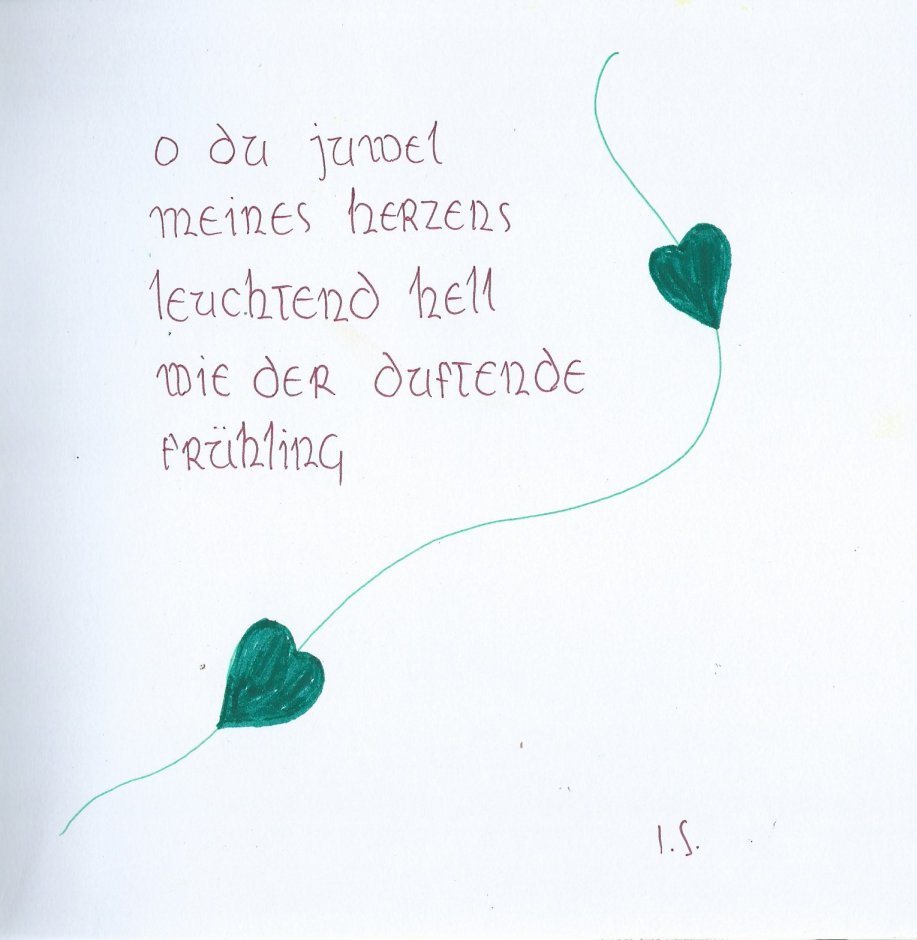 o du juwel
meines herzens
leuchtend hell
wie der duftende
frühling
I.S.